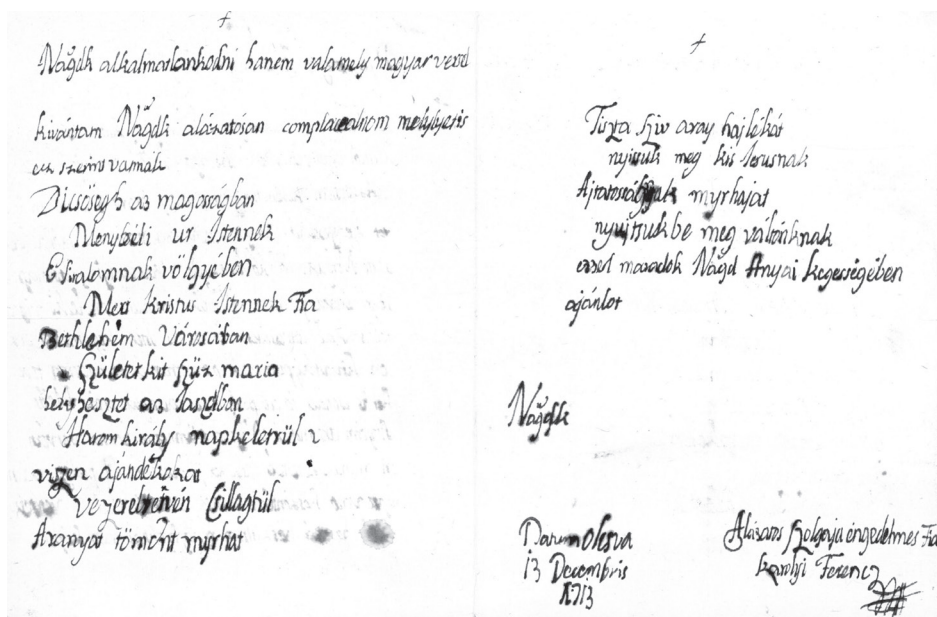 Nāgdk alkalmatlankodni hanem valamely magyar versel
kivántam Nāgdk alázatósan complacealnom mellyekis
ez szerint vannak
Dücsöségh az magosságban
Menybéli ur Istennek
E Siralomnak völgyében
Mert Kristus Istennek Fia
Bethlehem Városában
Születet kit szüz maria
hely heztet az Jaszolban
Harom király napkeletrül
viszen ajándékokat
vezéreltetvén Csillagtúl
Aranyat töment myrhat
Tiszta sziv arany hajlékát
nyissuk meg kis Jesusnak
Ajtatosságnak myrhajat
nyujtsuk be meg váltónknak
ezzel maradok Nāgd Anyai kegességében
ajánlot
Nāgdk
Datum Olcsva
13 Decembris
1713
Alázatos szolgája engedelmes Fia
Karolyi Ferencz